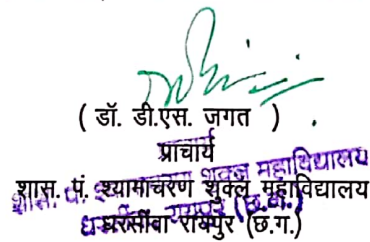 ( डॉ. डी.एस. जगत )
प्राचार्य
शास. पं. श्यामाचरण शुक्ल महाविद्यालय
धरसींवा रायपुर (छ.ग.)
शास. पं. श्यामाचरण शुक्ल महाविद्यालय
धरसींवा रायपुर (छ.ग.)